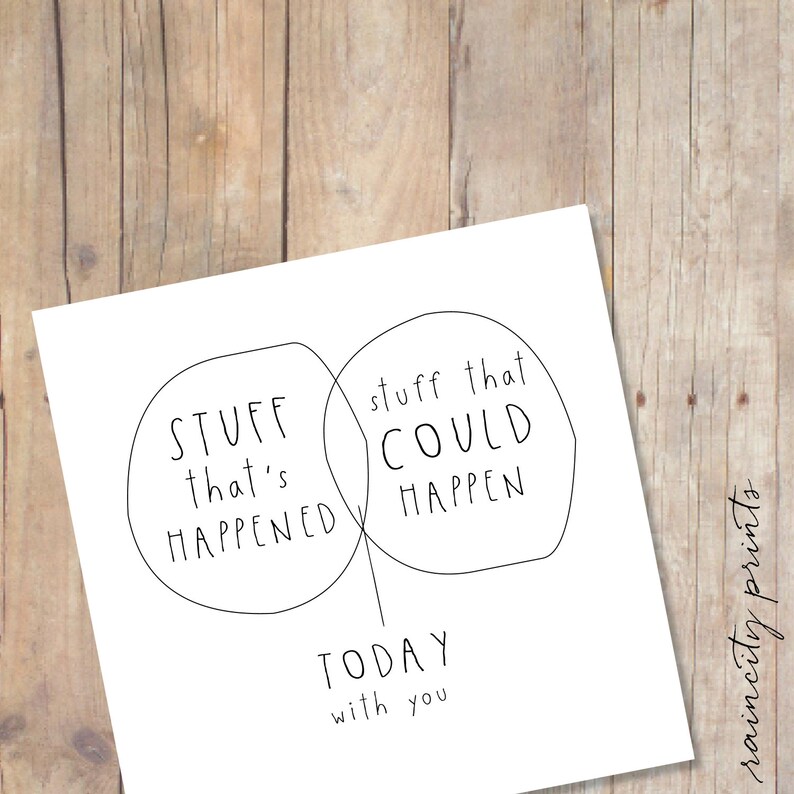 STUFF
that's
HAPPENED
stuff that
COULD
HAPPEN
TODAY
with you
raincity prints